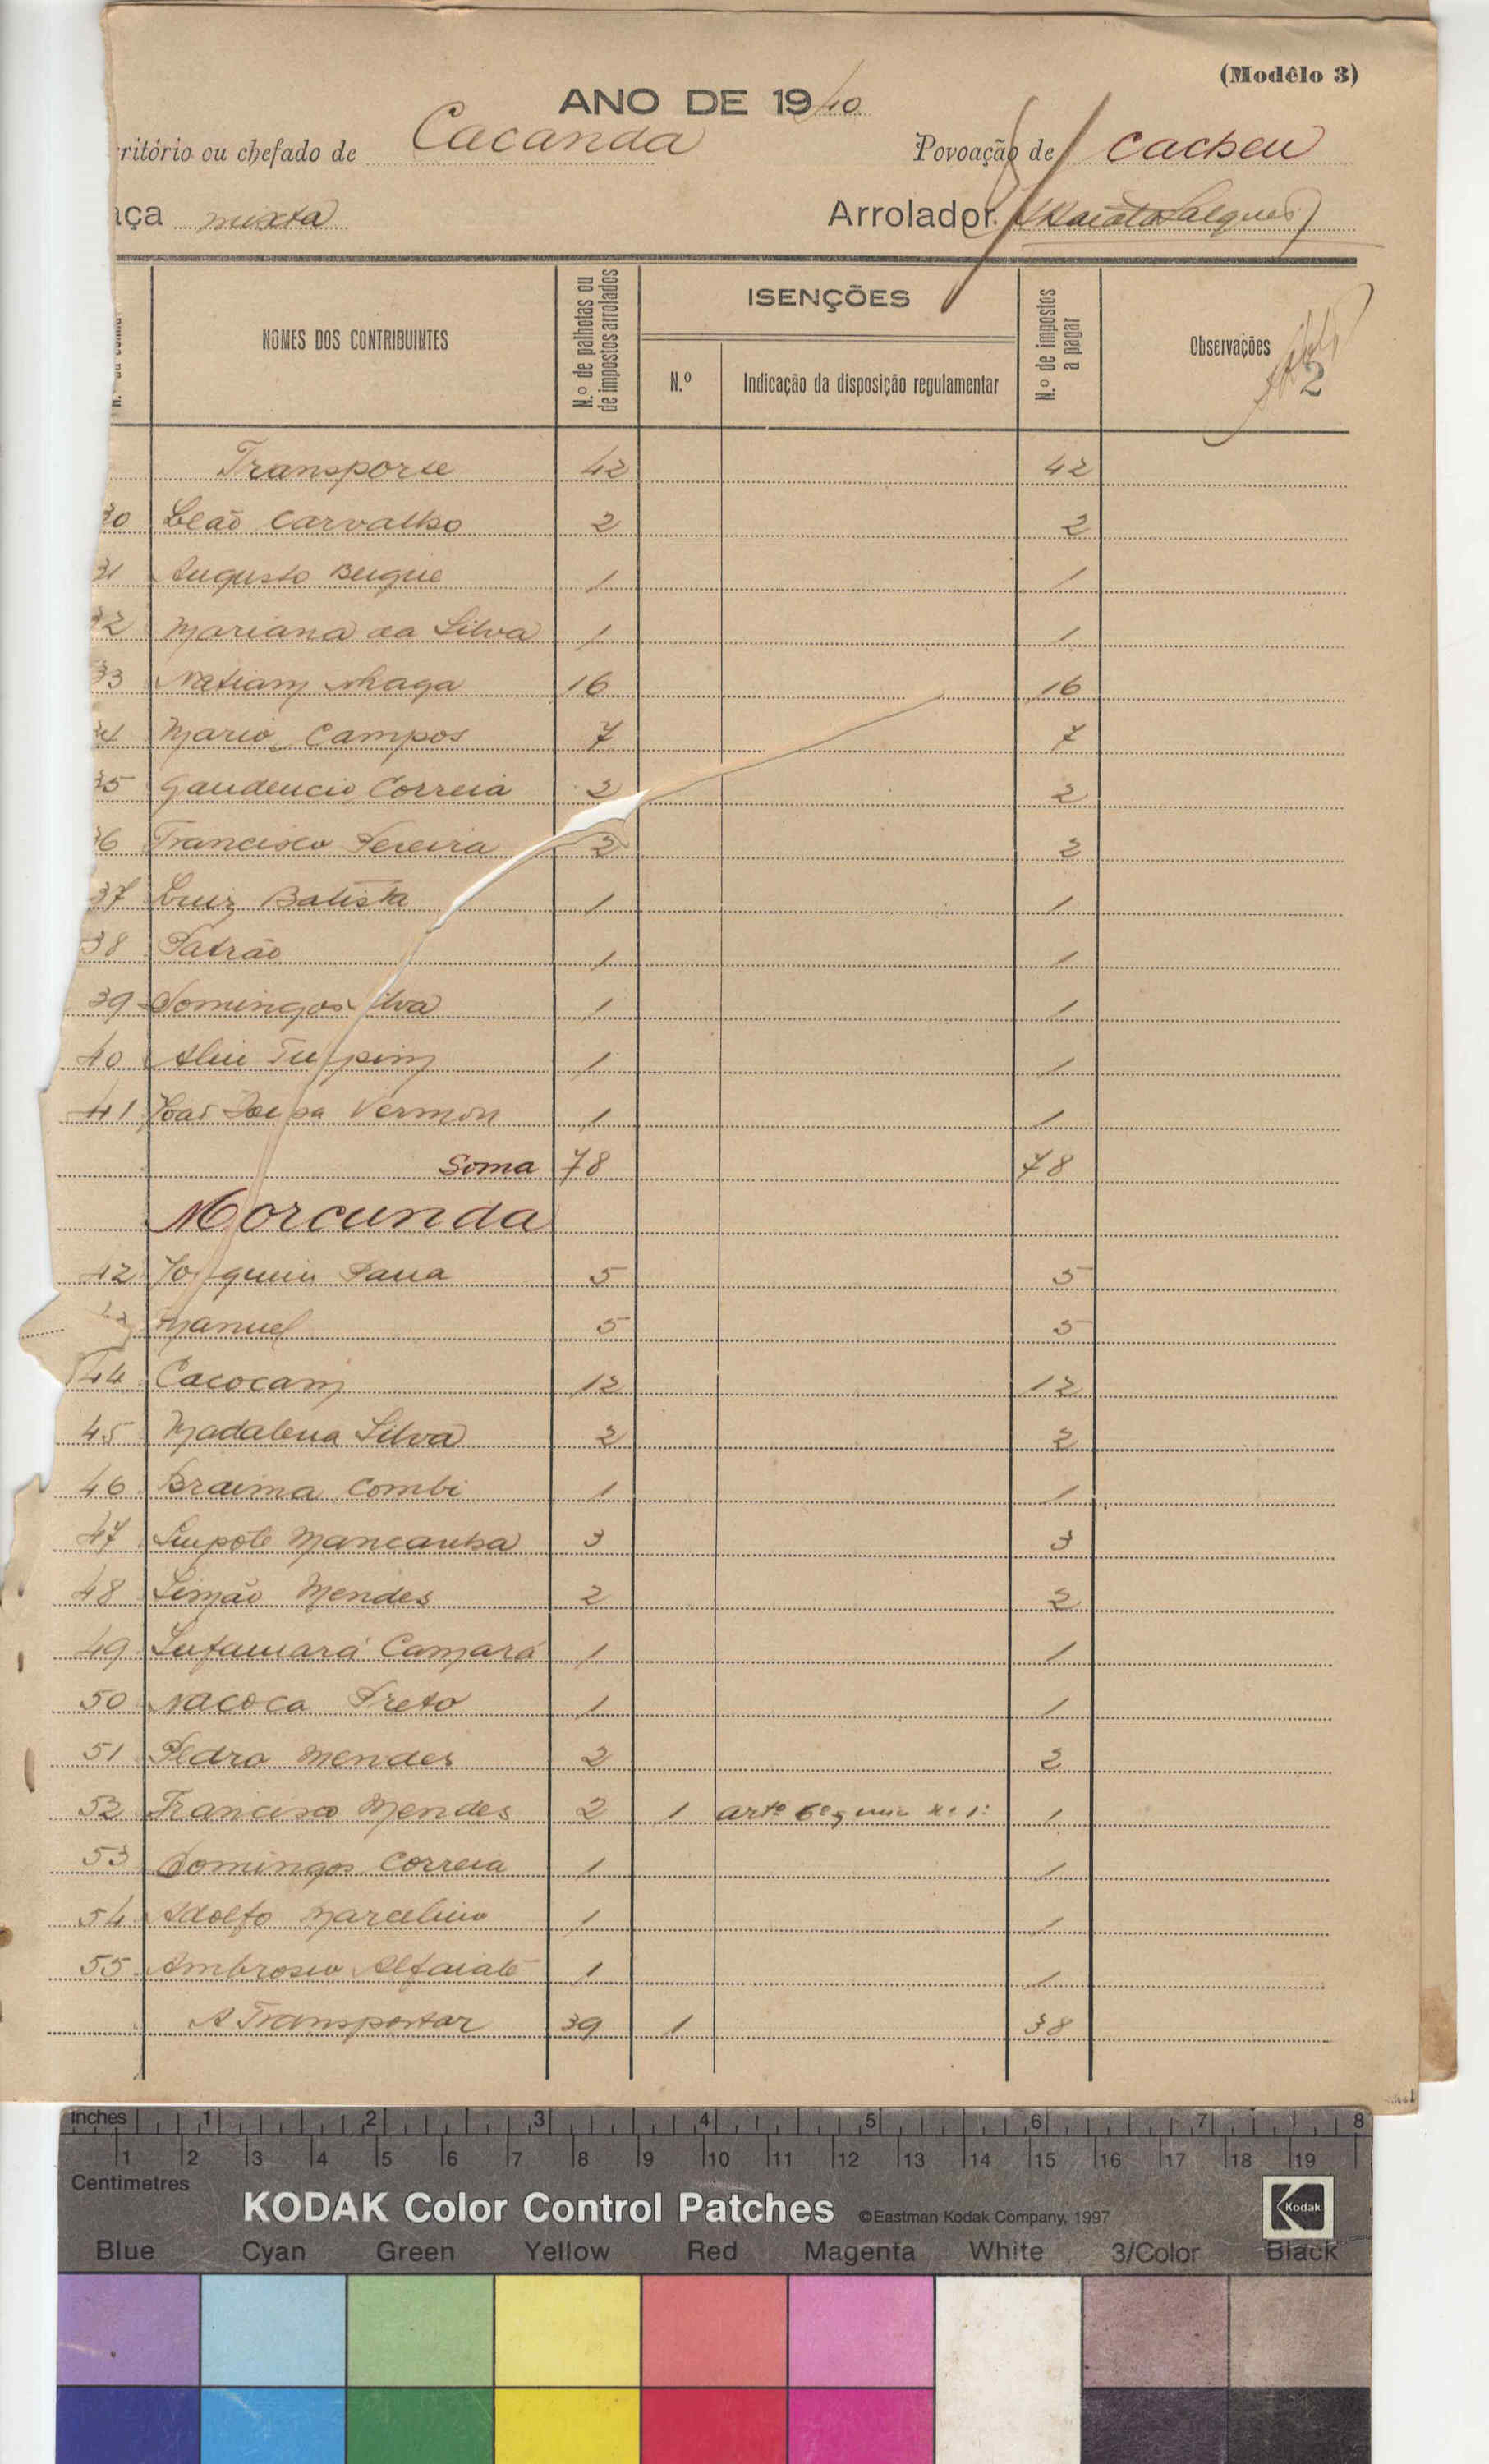 (Modêlo 3)
ANO DE 1940
ritório ou chefado de Cacanda Povoação de Cacheu
aça mixta Arrolador
NOMES DOS CONTRIBUINTES
N.º de palhotas ou de impostos arrolados
ISENÇÕES
N.º
Indicação da disposição regulamentar
N.º de impostos a pagar
Observações
2
Transporte 42 42
30 Leão Carvalho 2 2
31 Augusto 1 1
32 Mariana da Silva 1 1
33 16 16
34 Mario Campos 7 7
35 Gaudencio Correia 2 2
36 Francisco Pereira 2 2
37 Luiz Batista 1 1
38 Patrão 1 1
39 Domingos ilva 1 1
40 1 1
41 1 1
Soma 78 78
Morcunda
42 5 5
Manuel 5 5
44 Cacocam 12 12
45 Madalena Silva 2 2
46 Braima Combi 1 1
47 3 3
48 Simão Mendes 2 2
49 Camará 1 1
50 Nacoca Preto 1 1
51 Pedro Mendes 2 2
52 Francisco Mendes 2 1 artº 6º 1
53 Domingos Correia 1 1
54 Adolfo Marcelino 1 1
55 Ambrosio Alfaiate 1 1
A Transportar 39 1 38
inches 1 2 3 4 5 6 7 8
1 2 3 4 5 6 7 8 9 10 11 12 13 14 15 16 17 18 19
Centimetres
KODAK Color Control Patches ©Eastman Kodak Company, 1997 Kodak
Blue Cyan Green Yellow Red Magenta White 3/Color Black